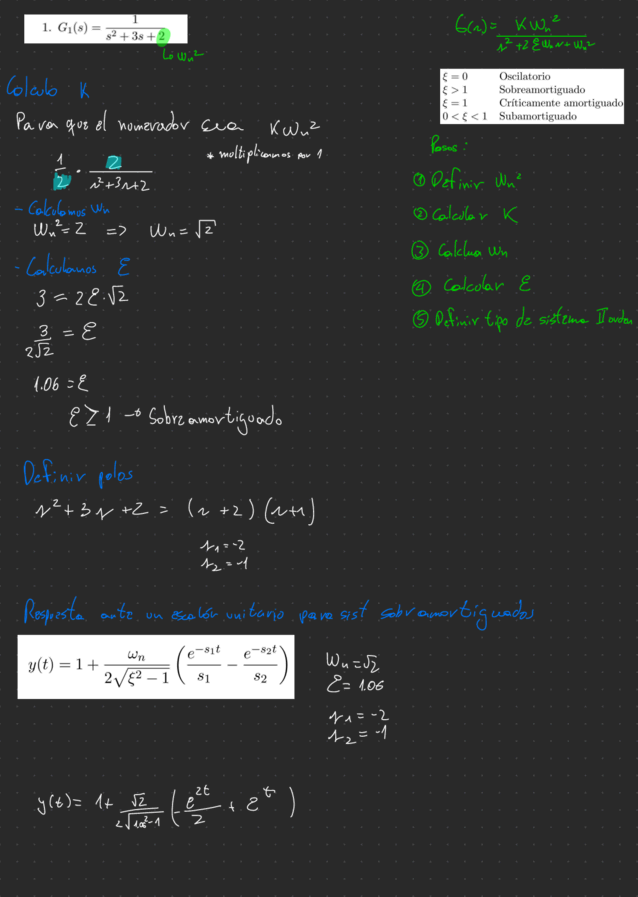 1. G₁(s) = 1 / (s² + 3s + 2)
↳ ωn²
G(s) = Kωn² / (s² + 2ξωn s + ωn²)
ξ = 0 Oscilatorio
ξ > 1 Sobreamortiguado
ξ = 1 Críticamente amortiguado
0 < ξ < 1 Subamortiguado
Calculo K
Para que el numerador sea Kωn²
* multiplicamos por 1
1/2 · 2 / (s² + 3s + 2)
- Calculamos Wn
Wn² = 2 => Wn = √2
- Calculamos ξ
3 = 2ξ·√2
3 / 2√2 = ξ
1.06 = ξ
ξ ≥ 1 → Sobreamortiguado
Pasos:
① Definir Wn²
② Calcular K
③ Wn
④ Calcular ξ
⑤ Definir tipo de sistema II orden
Definir polos
s² + 3s + 2 = (s + 2) (s + 1)
s₁ = -2
s₂ = -1
Respuesta ante un escalón unitario para sist sobreamortiguados
y(t) = 1 + ωn / (2√(ξ² − 1)) (e^(−s₁t) / s₁ − e^(−s₂t) / s₂)
Wn = √2
ξ = 1.06
s₁ = -2
s₂ = -1
y(t) = 1 + √2 / (2√(1.06² − 1)) (− e^(2t) / 2 + e^t)